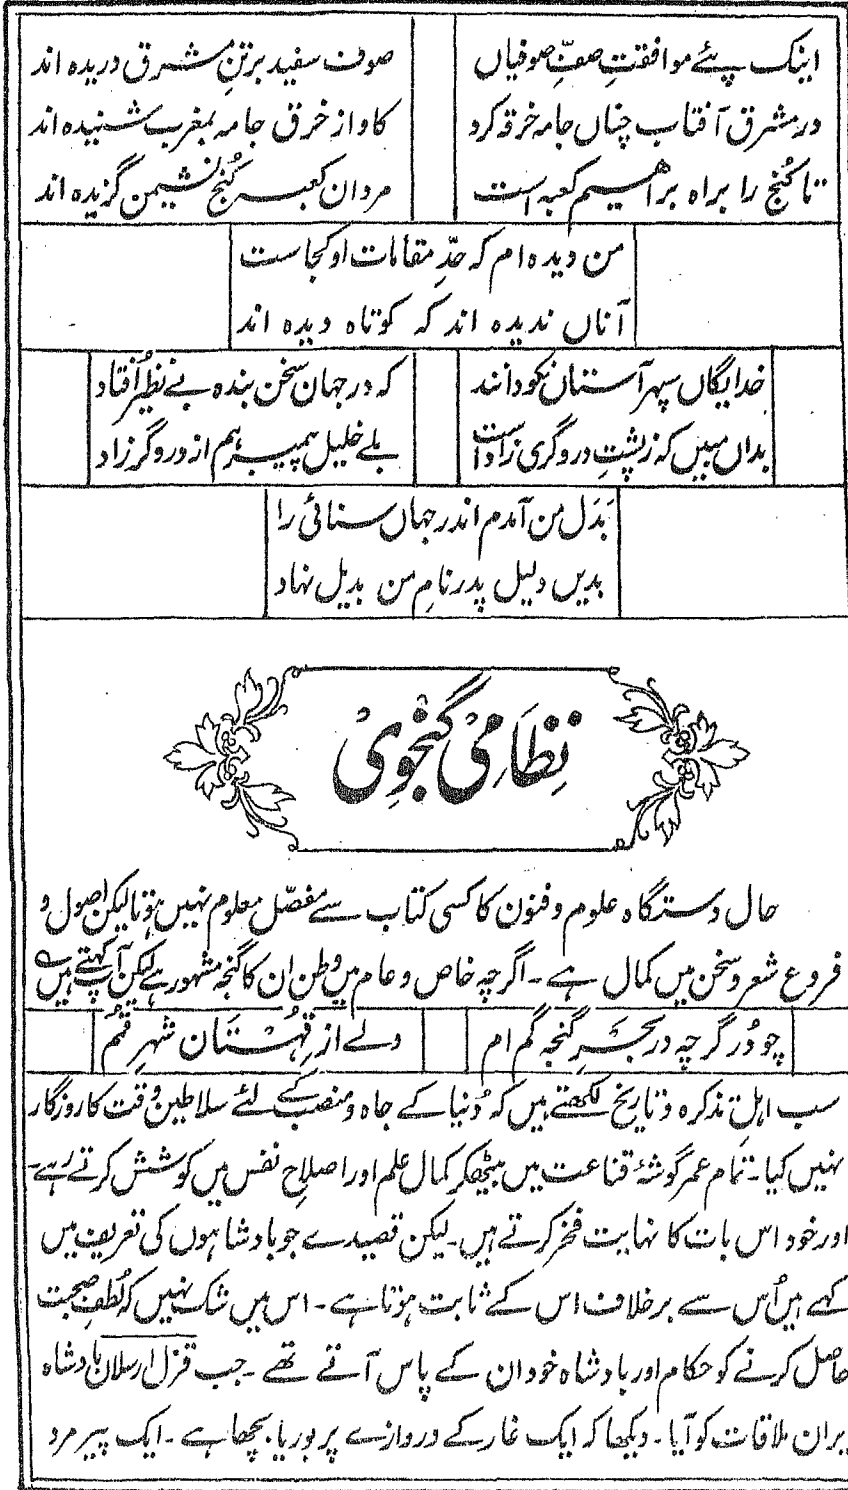 اینک پئے موافقتِ صفِّ صوفیاں صوف سفید بر تنِ مشرق دریدہ اند
در مشرق آفتاب چناں جامہ خرقہ کرد کاواز خرق جامہ بمغرب شنیدہ اند
تا کُنج را براہ براھیم کعبہ است مردان کعبہ کُنجِ نشیمن گزیدہ اند
من دیدہ ام کہ حدِّ مقامات او کجاست
آناں ندیدہ اند کہ کوتاہ دیدہ اند
خدایگاں سپہر آستان نکو دانند کہ در جہان سخن بندہ بے نظیر اُفتاد
بداں مبیں کہ ز پشتِ دروگری زادا ست بلے خلیل پیمبر ہم از دروگر زاد
بَدَل من آمدم اندر جہاں سنائی را
بدیں دلیل پدر نامِ من بدیل نہاد
نِظَامِیْ گَنْجْوِیْ
حال دستگاہ علوم و فنون کا کسی کتاب سے مفصّل معلوم نہیں ہوتا لیکن اصول و
فروع شعر و سخن میں کمال ہے۔ اگرچہ خاص و عام میں وطن ان کا گنجہ مشہور ہے لیکن آپ کہتے ہیں ؎
چو دُر گرچہ در بحرِ گنجہ گم ام ولے از قہُستَان شہرِ قُمم
سب اہلِ تذکرہ و تاریخ لکھتے ہیں کہ دُنیا کے جاہ و منصب کے لئے سلاطین وقت کا روزگار
نہیں کیا۔ تمام عمر گوشۂ قناعت میں بیٹھکر کمال علم اور اصلاحِ نفس میں کوشش کرتے رہے۔
اور خود اس بات کا نہایت فخر کرتے ہیں۔ لیکن قصیدے جو بادشاہوں کی تعریف میں
کہے ہیں اُس سے برخلاف اس کے ثابت ہوتا ہے۔ اس میں شک نہیں کہ لُطفِ صحبت
حاصل کرنے کو حکام اور بادشاہ خود ان کے پاس آتے تھے۔ جب قزل ارسلان بادشاہ
یران ملاقات کو آیا۔ دیکھا کہ ایک غار کے دروازے پر بوریا بچھا ہے۔ ایک پیر مرد